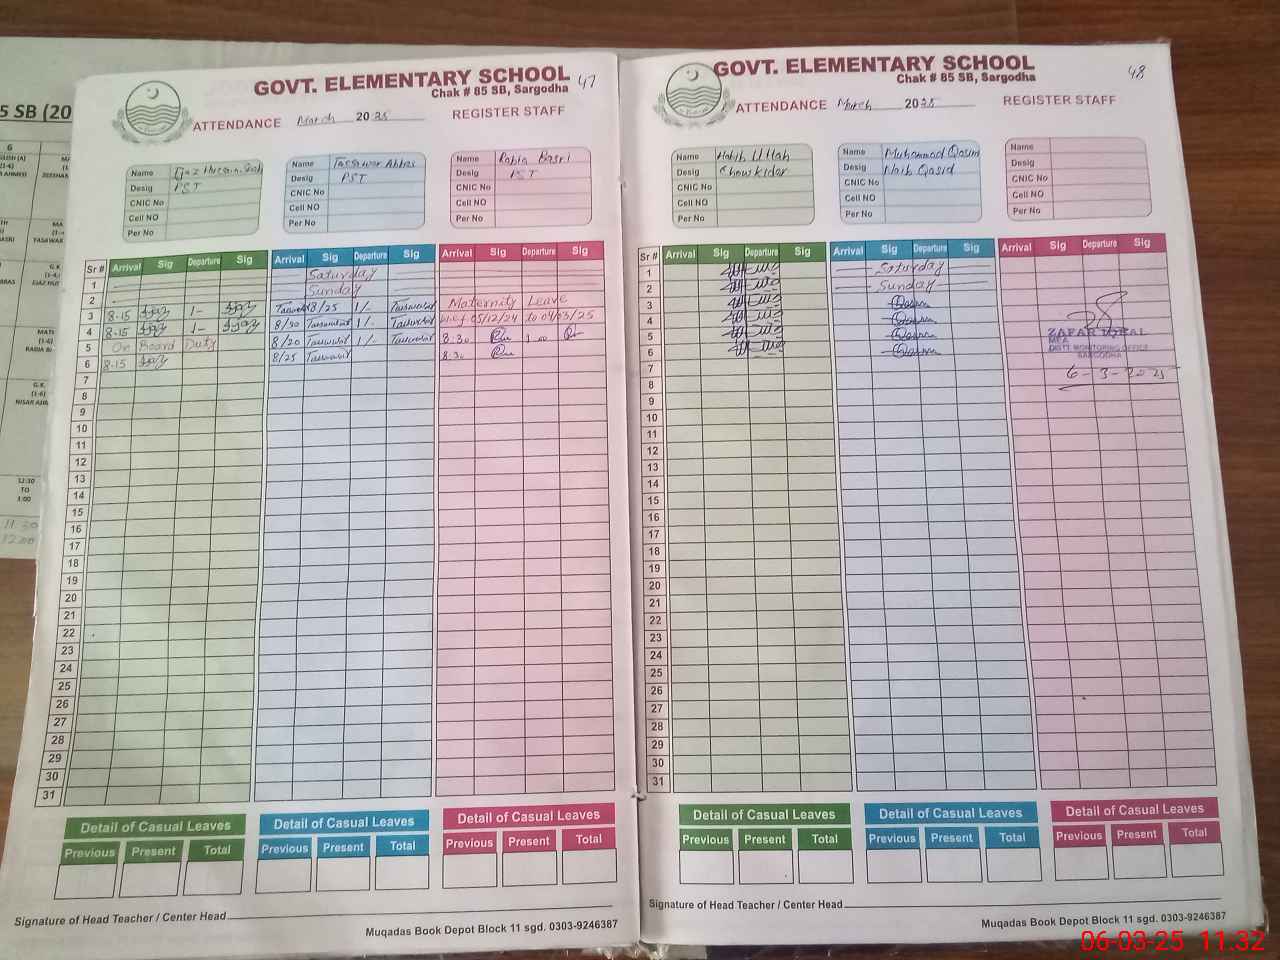 5 SB (20
6
GOVT. ELEMENTARY SCHOOL 47
Chak # 85 SB, Sargodha
ATTENDANCE March 2025 REGISTER STAFF
Name
Desig PST
CNIC No
Cell NO
Per No
Name Tassawar Abbas
Desig PST
CNIC No
Cell NO
Per No
Name Rabia Basri
Desig PST
CNIC No
Cell NO
Per No
Sr # Arrival Sig Departure Sig Arrival Sig Departure Sig Arrival Sig Departure Sig
1 Saturday
2 Sunday
3 8-15 Ijaz 1- Ijaz 8/25 1/- Maternity Leave
4 8-15 Ijaz 1- Ijaz 8/30 1/- w.e.f 05/12/24 to 04/03/25
5 On Board Duty 8/20 1/- 8:30 1:00
6 8-15 Ijaz 8/25 8:30
7
8
9
10
11
12
13
14
15
16
17
18
19
20
21
22
23
24
25
26
27
28
29
30
31
Detail of Casual Leaves Detail of Casual Leaves Detail of Casual Leaves
Previous Present Total Previous Present Total Previous Present Total
Signature of Head Teacher / Center Head
Muqadas Book Depot Block 11 sgd. 0303-9246387
GOVT. ELEMENTARY SCHOOL 48
Chak # 85 SB, Sargodha
ATTENDANCE March 2025 REGISTER STAFF
Name Habib Ullah
Desig Chowkidar
CNIC No
Cell NO
Per No
Name Muhammad Qasim
Desig Naib Qasid
CNIC No
Cell NO
Per No
Name
Desig
CNIC No
Cell NO
Per No
Sr # Arrival Sig Departure Sig Arrival Sig Departure Sig Arrival Sig Departure Sig
1 Saturday
2 Sunday
3 Qasim
4 Qasim
5 Qasim
6 Qasim
7
8
9
10
11
12
13
14
15
16
17
18
19
20
21
22
23
24
25
26
27
28
29
30
31
ZAFAR IQBAL
MEA
DISTT. MONITORING OFFICE
SARGODHA
6-3-2025
Detail of Casual Leaves Detail of Casual Leaves Detail of Casual Leaves
Previous Present Total Previous Present Total Previous Present Total
Signature of Head Teacher / Center Head
Muqadas Book Depot Block 11 sgd. 0303-9246387
06-03-25 11.32